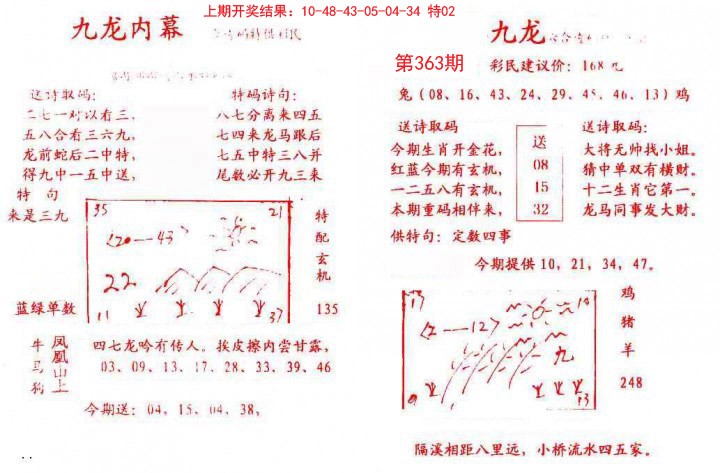 上期开奖结果：10-48-43-05-04-34 特02
九龙内幕
送诗取码：
二七一对以看三，
五八合看三六九，
龙前蛇后二中特，
得九中一五中送，
特码诗句：
八七分离来四五
七四来龙马跟后
七五中特三八并
尾数必开九三来
特 句
来是三九
35
21
20—43
22
11
37
特配玄机
135
蓝绿单数
牛马狗
凤凰山上
四七龙吟有传人。挨皮擦内尝甘露，
03、09、13、17、28、33、39、46
今期送：04，15、04、38，
九龙
第363期
彩民建议价：168元
兔（08、16、43、24、29、45、46、13）鸡
送诗取码
今期生肖开金花，
红蓝今期有玄机，
一二五八有玄机，
本期重码相伴来，
送
08
15
32
送诗取码：
大将无帅找小姐。
猜中单双有横财。
十二生肖它第一。
龙马同事发大财。
供特句：定数四事
今期提供10，21，34，47。
17
10
2—12
九
9
13
鸡
猪
羊
248
隔溪相距八里远，小桥流水四五家。